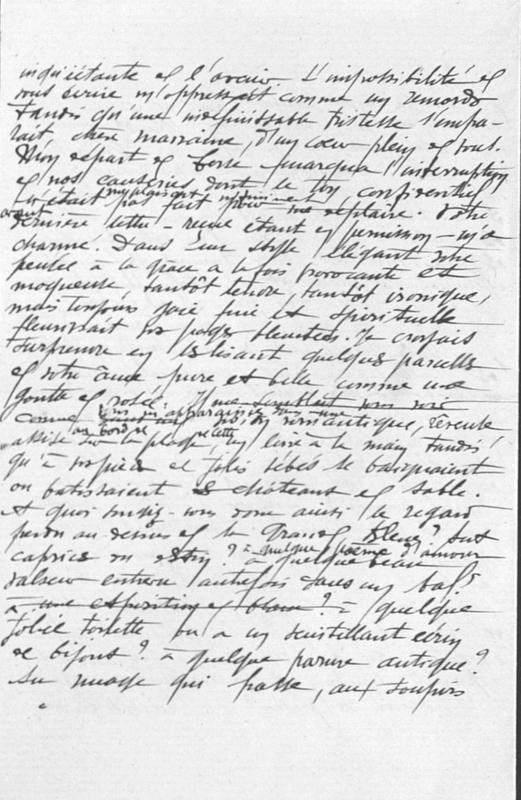 inquiétante et l'avenir L'impossibilité de
vous écrire m'oppressait comme un remords
tandis qu'une indéfinissable tristesse s'empa-
rait chère marraine, d'un cœur plein de vous.
Mon départ de Corse marqua l'interruption
de nos causeries dont le ton confidentiel
n'était pas fait pour me déplaire. Votre
avant
dernière lettre - reçue étant en permission - m'a
charmé. Dans un style élégant votre
pensée à la grâce à la fois provocante et
moqueuse tantôt tendre, tantôt ironique,
mais toujours gaie fine et spirituelle
fleurissait vos pages bleutées. Je croyais
surprendre en les lisant quelques parcelles
de votre âme pure et belle comme une
goutte de rosée. Il me semblait vous voir
comme romantique, rêveuse
assise au bord de la plage, un livre à la main tandis
qu'à vos pieds de jolis bébés se baignaient
ou batissaient des châteaux de sable.
A quoi songiez-vous donc ainsi le regard
perdu au dessus de la Grande Bleue?
caprice ou à quelque poème d'amour à quelque beau
valseur entrevu autrefois dans un bal?
à quelque
jolie toilette ou à un scintillant écrin
de bijoux? à quelque parure antique?
au nuage qui passe, aux soupirs